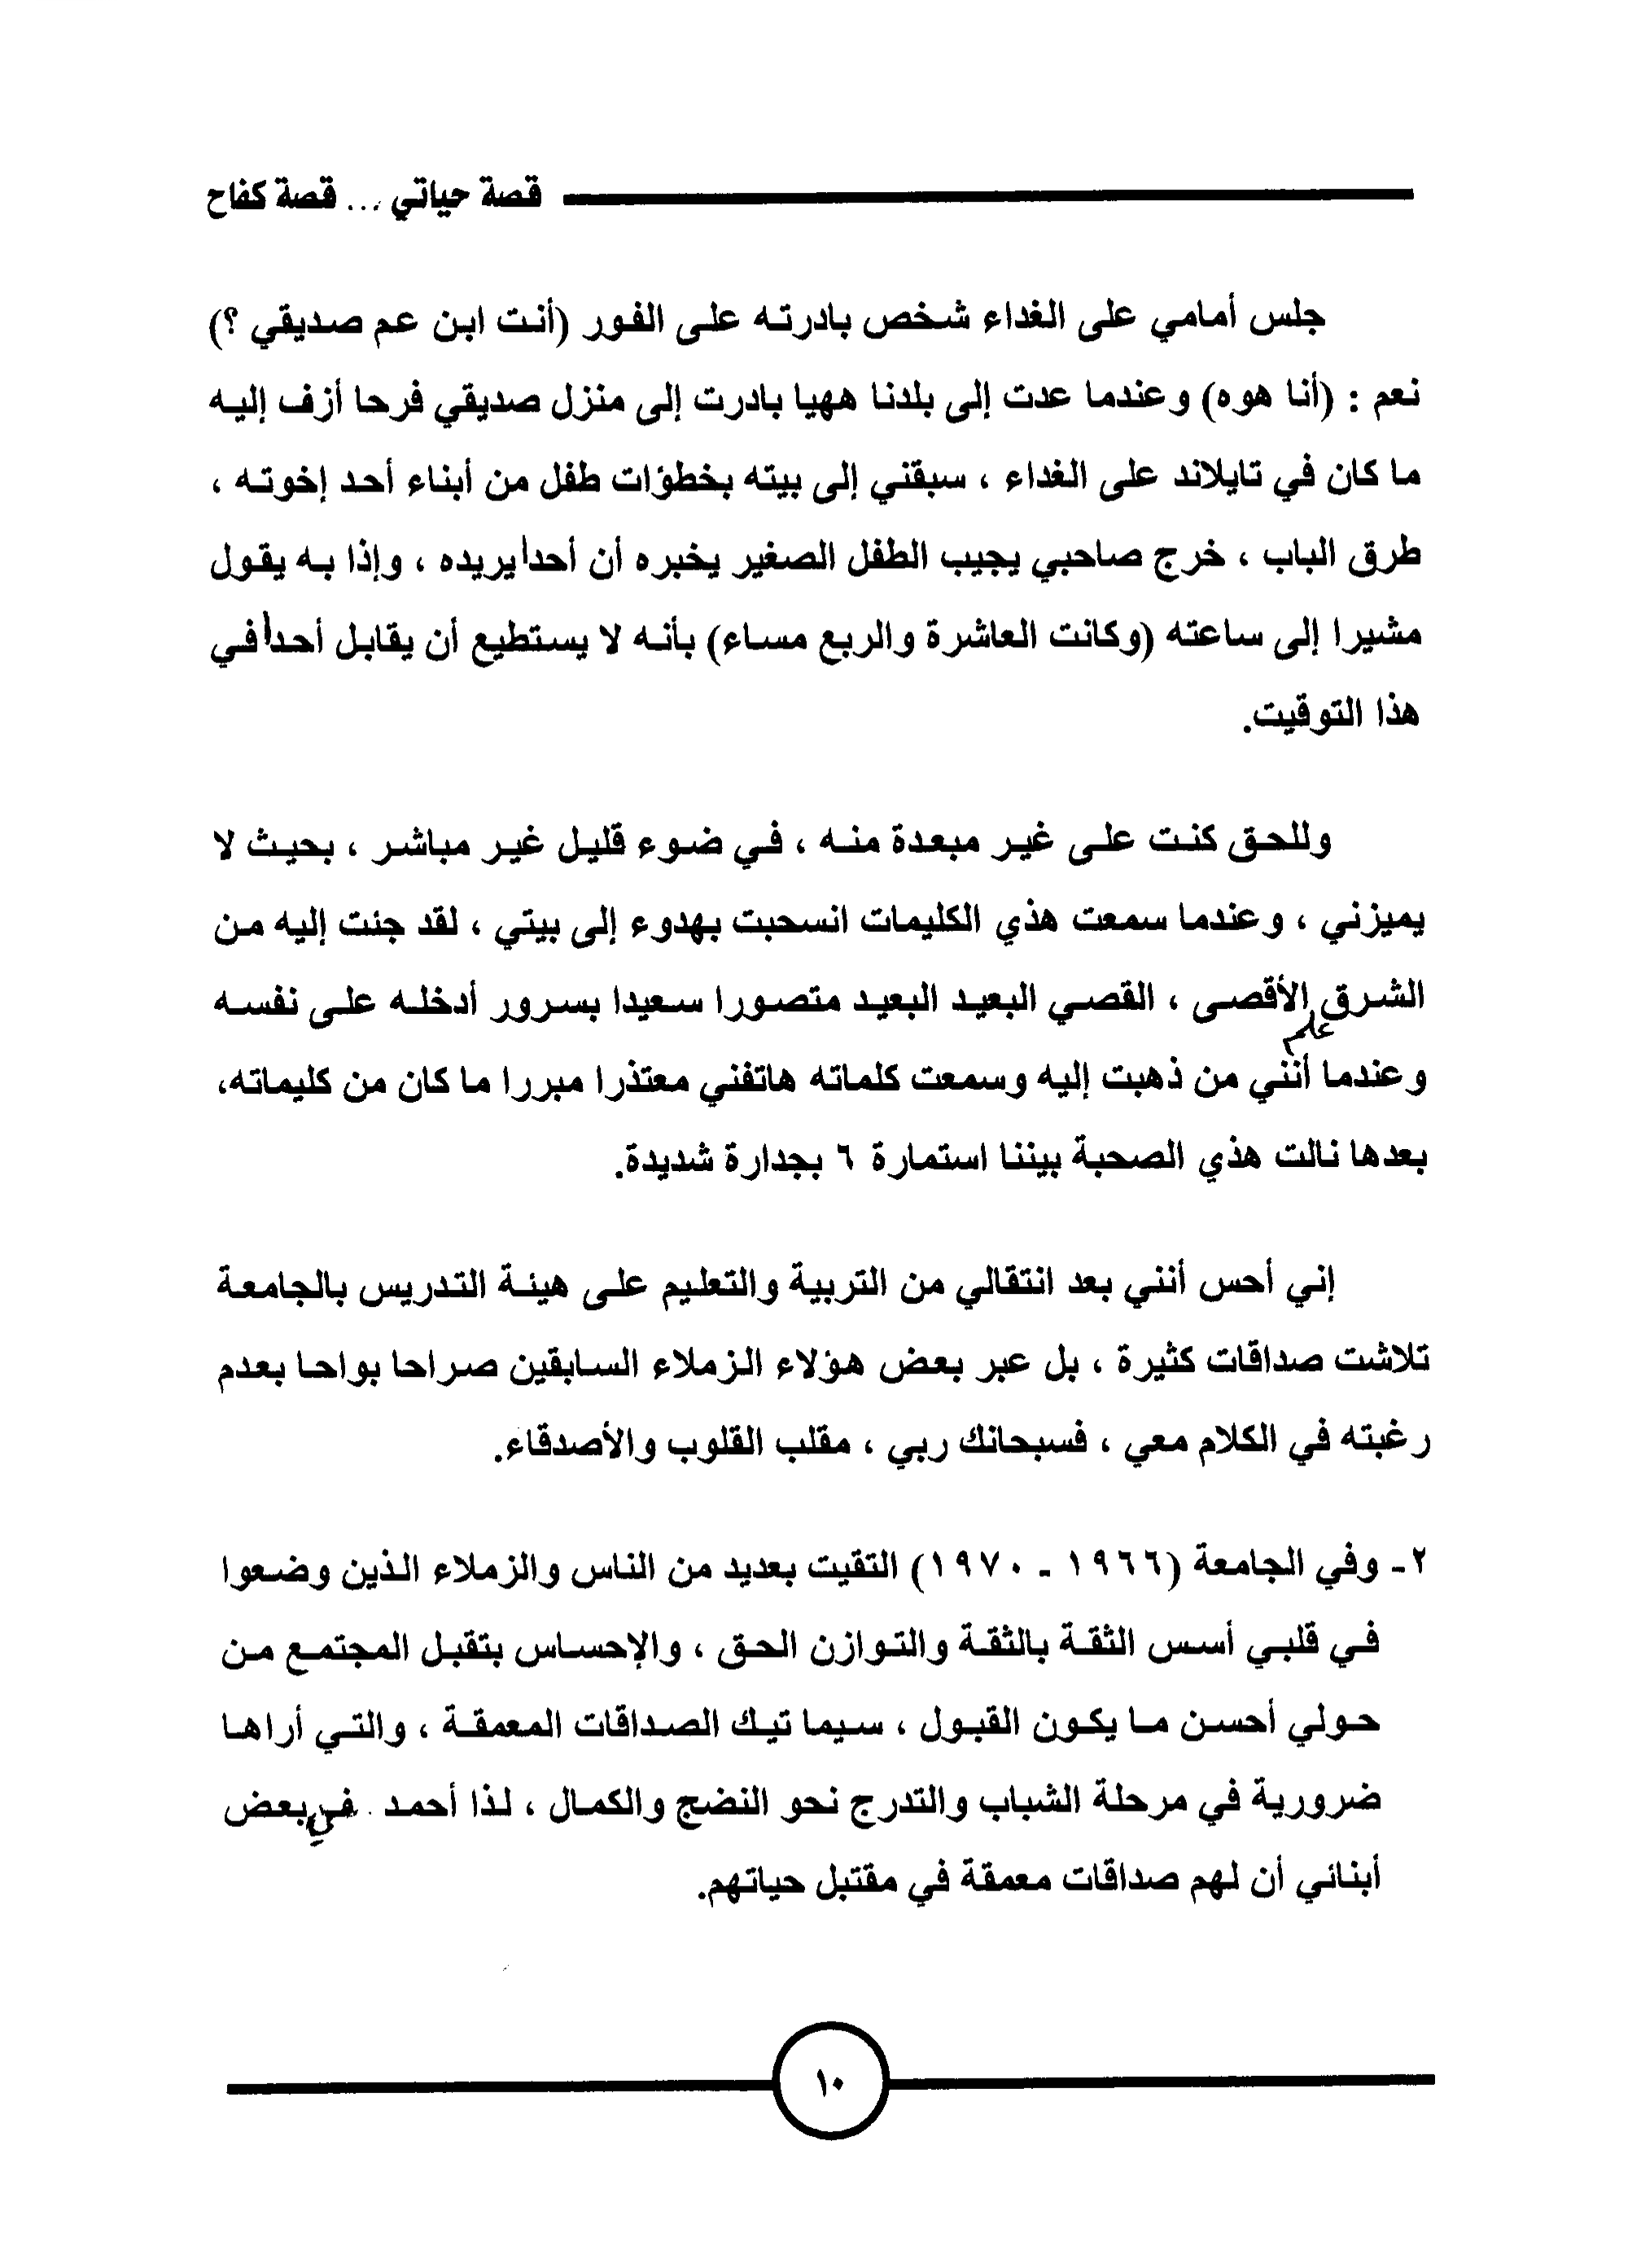 قصة حياتي ... قصة كفاح
جلس أمامي على الغداء شخص بادرته على الفور (أنت ابن عم صديقي ؟)
نعم : (أنا هوه) وعندما عدت إلى بلدنا ههيا بادرت إلى منزل صديقي فرحا أزف إليه
ما كان في تايلاند على الغداء ، سبقني إلى بيته بخطؤات طفل من أبناء أحد إخوته ،
طرق الباب ، خرج صاحبي يجيب الطفل الصغير يخبره أن أحدا يريده ، وإذا به يقول
مشيرا إلى ساعته (وكانت العاشرة والربع مساء) بأنه لا يستطيع أن يقابل أحدا في
هذا التوقيت.
وللحق كنت على غير مبعدة منه ، في ضوء قليل غير مباشر ، بحيث لا
يميزني ، وعندما سمعت هذي الكليمات انسحبت بهدوء إلى بيتي ، لقد جئت إليه من
الشرق الأقصى ، القصي البعيد البعيد متصورا سعيدا بسرور أدخله على نفسه
وعندما علم أنني من ذهبت إليه وسمعت كلماته هاتفني معتذرا مبررا ما كان من كليماته،
بعدها نالت هذي الصحبة بيننا استمارة ٦ بجدارة شديدة.
إني أحس أنني بعد انتقالي من التربية والتعليم على هيئة التدريس بالجامعة
تلاشت صداقات كثيرة ، بل عبر بعض هؤلاء الزملاء السابقين صراحا بواحا بعدم
رغبته في الكلام معي ، فسبحانك ربي ، مقلب القلوب والأصدقاء.
٢- وفي الجامعة (١٩٦٦ - ١٩٧٠) التقيت بعديد من الناس والزملاء الذين وضعوا
في قلبي أسس الثقة بالثقة والتوازن الحق ، والإحساس بتقبل المجتمع من
حولي أحسن ما يكون القبول ، سيما تيك الصداقات المعمقة ، والتي أراها
ضرورية في مرحلة الشباب والتدرج نحو النضج والكمال ، لذا أحمد في بعض
أبنائي أن لهم صداقات معمقة في مقتبل حياتهم.
١٠